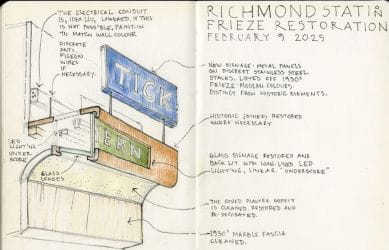 RICHMOND STATION
FRIEZE RESTORATION
FEBRUARY 9 2025
THE ELECTRICAL CONDUIT
IS, IDEALLY, LOWERED. IF THIS
IS NOT POSSIBLE, PAINT-IN
TO MATCH WALL COLOUR
DISCRETE
ANTI-
PIGEON
WIRES
IF
NECESSARY.
TICK
ERN
LED
LIGHTING
UNDER
SCORE
GLASS
LENSES
NEW SIGNAGE: METAL PANELS
ON DISCREET STAINLESS STEEL
STALKS, LIFTED OFF 1930'
FRIEZE. MODERN COLOURS.
DISTINCT FROM HISTORIC ELEMENTS.
HISTORIC JOINERY RESTORED
WHERE NECESSARY
GLASS SIGNAGE RESTORED AND
BACK LIT WITH LONG-LIVED LED
LIGHTING, LINEAR "UNDERSCORE"
THE COVED PLASTER SOFFIT
IS CLEANED, RESTORED AND
RE-DECORATED.
1930' MARBLE FASCIA
CLEANED.